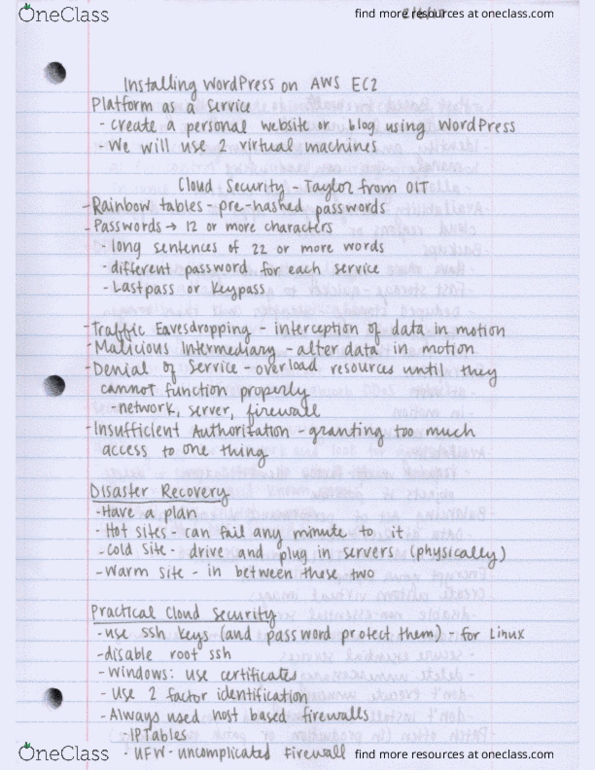 OneClass
find more resources at oneclass.com
Installing WordPress on AWS EC2
Platform as a Service
- create a personal website or blog using WordPress
- We will use 2 virtual machines
Cloud Security - Taylor from OIT
- Rainbow tables - pre-hashed passwords
- Passwords → 12 or more characters
- long sentences of 22 or more words
- different password for each service
- Lastpass or Keypass
- Traffic Eavesdropping - interception of data in motion
- Malicious Intermediary - alter data in motion
- Denial of Service - overload resources until they
cannot function properly
- network, server, firewall
- Insufficient Authorization - granting too much
access to one thing
Disaster Recovery
- Have a plan
- Hot sites - can fail any minute to it
- cold site - drive and plug in servers (physically)
- Warm site - in between these two
Practical Cloud Security
- use ssh keys (and password protect them) - for Linux
- disable root ssh
- Windows: use certificates
- Use 2 factor identification
- Always used host based firewalls
- IPTables
- UFW - uncomplicated Firewall
OneClass
find more resources at oneclass.com